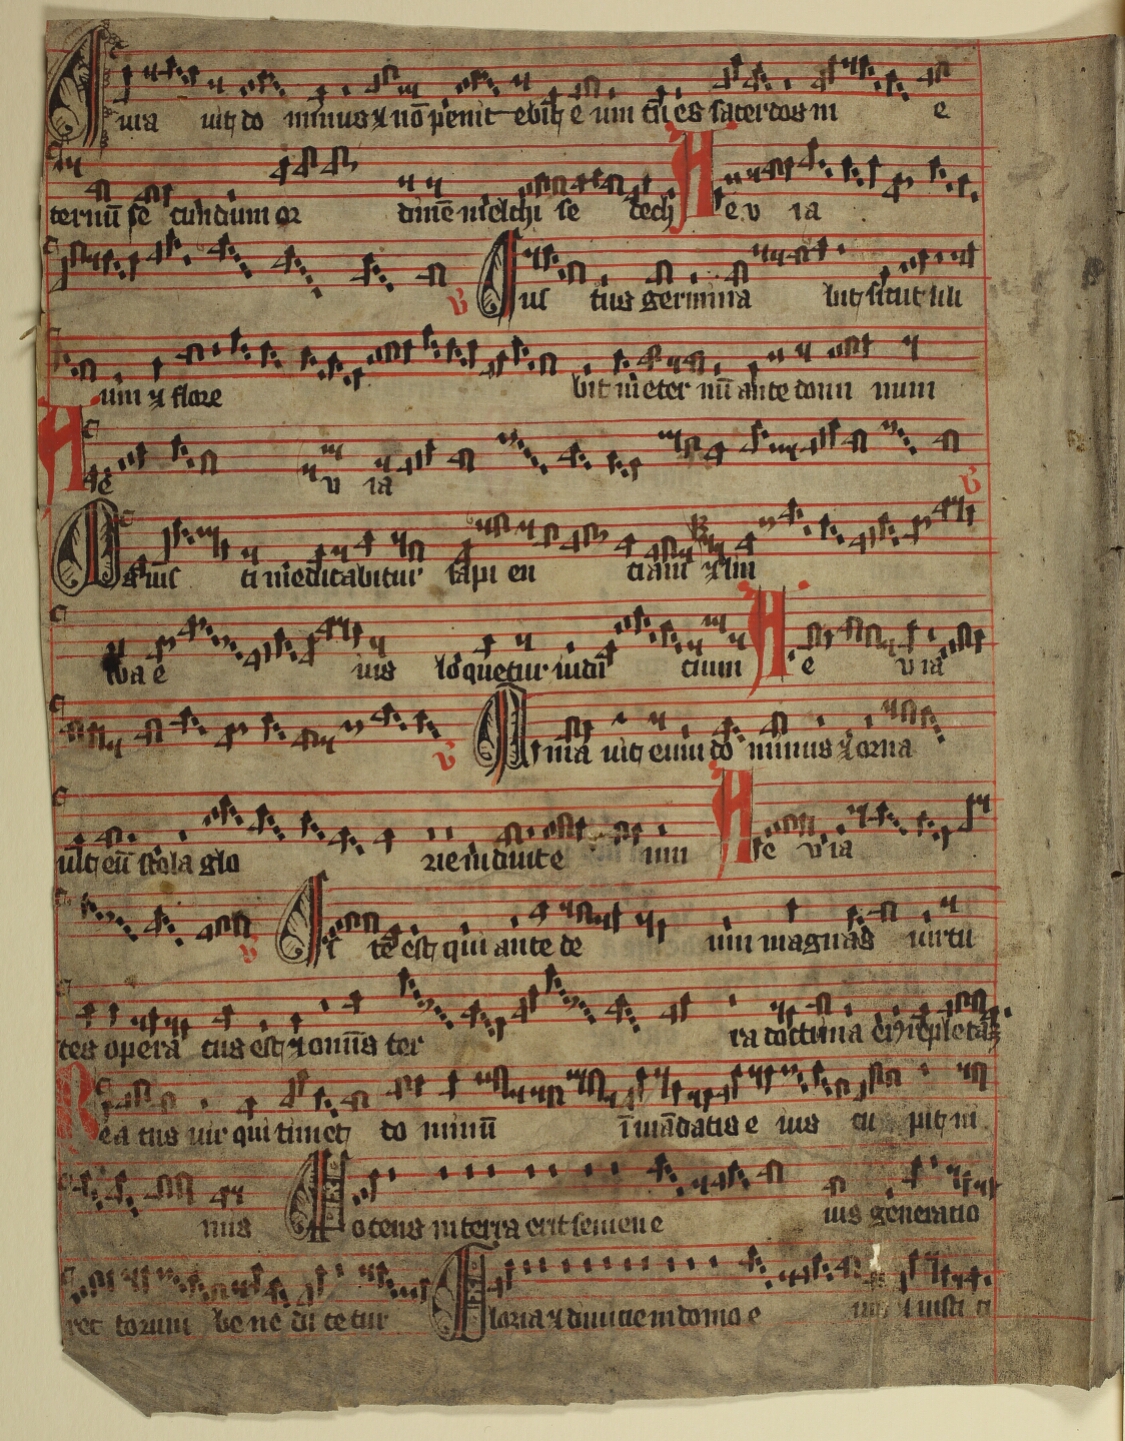 Iura uit do minus ⁊ nō penit ebit e um tu es sacerdos in e
ternū se cundum or dinē melchi se dech A e v ia
V Ius tus germina bit sicut lili
um ⁊ flore bit in eter nū ante domi num
A lle v ia V
Os ius ti meditabitur sapi en ciam ⁊ lin
gua e ius loquetur iudi cium A e v ia
V A ma uit eum do minus ⁊ orna
uit eū stola glo rie induit e um A lle v ia
V Is te est qui ante de um magnas uirtu
tes opera tus est ⁊ omnis ter ra doctrina ei repleta
Bea tus uir qui timet do minū in mādatis e ius cu pit ni
mis Potens in terra erit semen e ius generatio
rec torum be ne di ce tur Gloria ⁊ diuitie in domo e ius ⁊ iusti ci